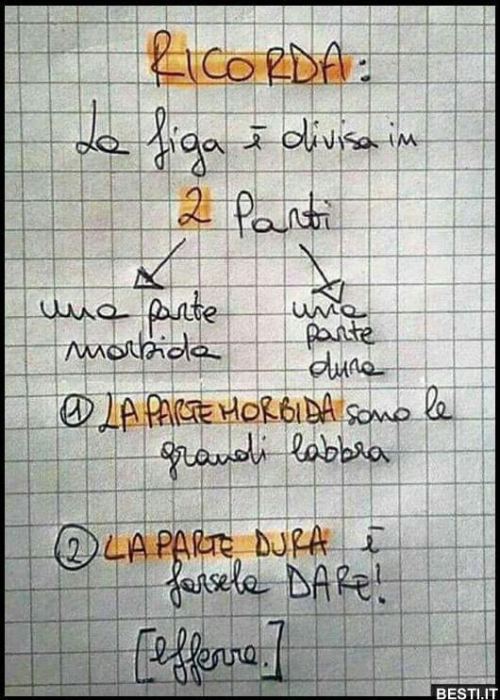 RICORDA:
La figa è divisa in
2 Parti
una parte morbida
una parte dura
① LA PARTE MORBIDA sono le
grandi labbra
② LA PARTE DURA è
farsela DARE!
[efferre.]
BESTI.IT